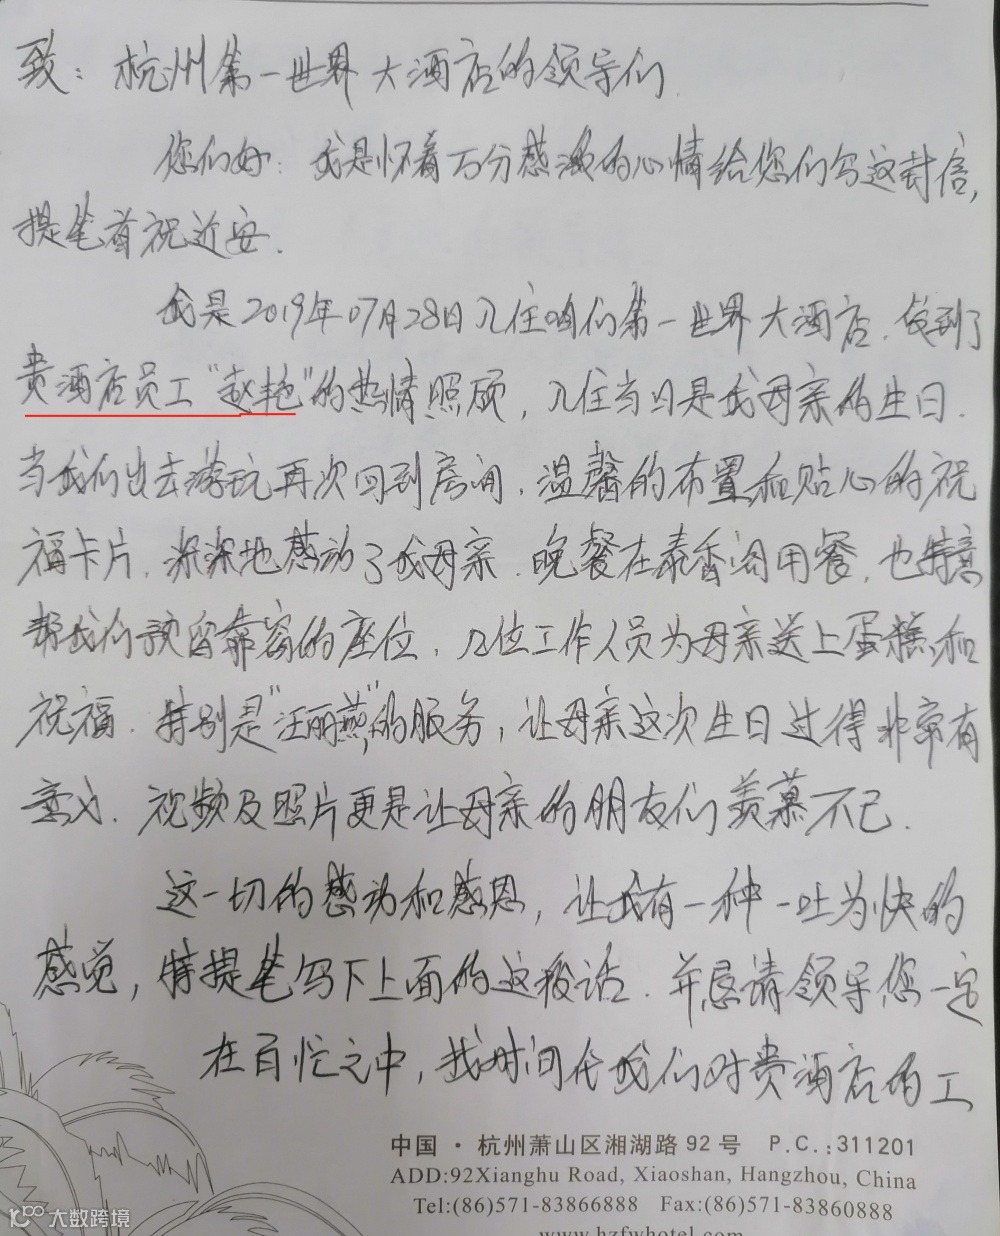 致：杭州第一世界大酒店的领导们
您们好：我是怀着万分感激的心情给您们写这封信，
提笔首祝近安.
我是2019年07月28日入住咱们第一世界大酒店.得到了
贵酒店员工"赵艳"的热情照顾，入住当日是我母亲的生日.
当我们出去游玩再次回到房间，温馨的布置和贴心的祝
福卡片.深深地感动了我母亲.晚餐在泰香阁用餐，也特意
帮我们预留靠窗的座位，几位工作人员为母亲送上蛋糕和
祝福.特别是"汪丽燕"的服务，让母亲这次生日过得非常有
意义.视频及照片更是让母亲的朋友们羡慕不已.
这一切的感动和感恩，让我有一种一吐为快的
感觉，特提笔写下上面的这段话.并恳请领导您一定
在百忙之中，找时间代我们对贵酒店的工
中国·杭州萧山区湘湖路92号 P.C.:311201
ADD:92Xianghu Road, Xiaoshan, Hangzhou, China
Tel:(86)571-83866888 Fax:(86)571-83860888
www.hzfwhotel.com
大数跨境